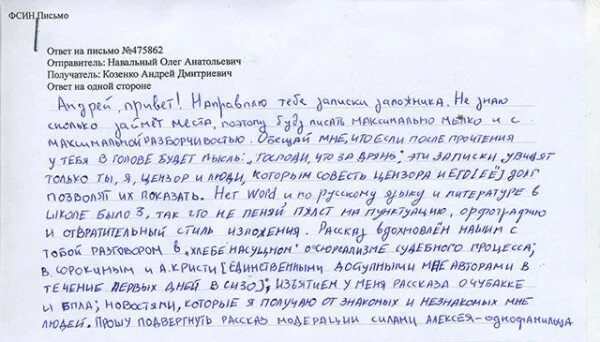 ФСИН Письмо
Ответ на письмо №475862
Отправитель: Навальный Олег Анатольевич
Получатель: Козенко Андрей Дмитриевич
Ответ на одной стороне
Андрей, привет! Направляю тебе записки заложника. Не знаю
сколько займёт места, поэтому буду писать максимально мелко и с
максимальной разборчивостью. Обещай мне, что если после прочтения
у тебя в голове будет мысль: „Господи, что за дрянь", эти записки увидят
только ты, я, цензор и люди, которым совесть цензора и его[её] долг
позволят их показать. Нет Word и по русскому языку и литературе в
школе было 3, так что не пеняй, пжлст на пунктуацию, орфографию
и отвратительный стиль изложения. Рассказ вдохновлён нашим с
тобой разговором в „Хлебе насущном" о сюрреализме судебного процесса;
В. Сорокиным и А. Кристи [единственными доступными мне авторами в
течение первых дней в СИЗО]; изъятием у меня рассказа о Чубакке
и БПЛА; новостями, которые я получаю от знакомых и незнакомых мне
людей. Прошу подвергнуть рассказ модерации силами Алексея-однофамильца